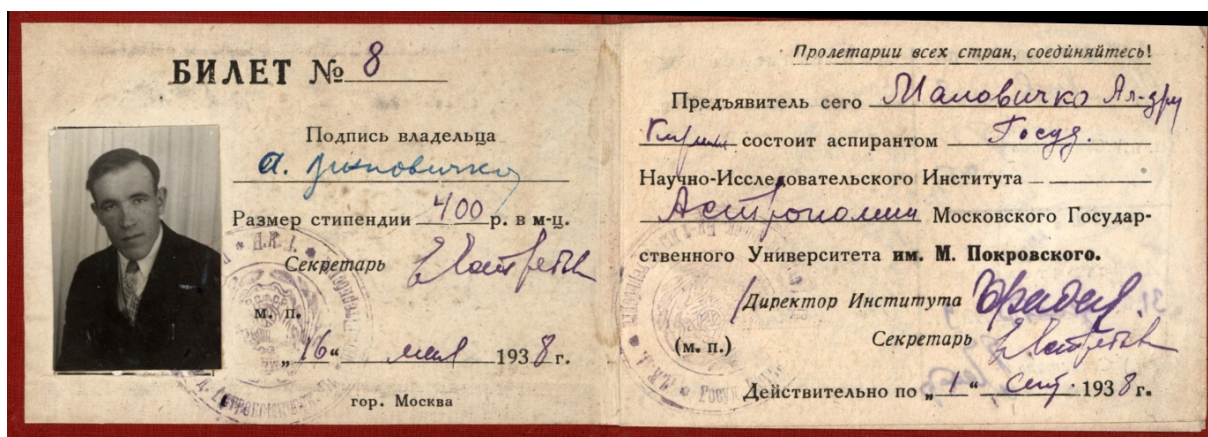 БИЛЕТ № 8
Подпись владельца
Размер стипендии 400 р. в м-ц.
Секретарь
м. п.
„16“ мая 1938 г.
гор. Москва
Пролетарии всех стран, соединяйтесь!
Предъявитель сего Маловичко Ал-др
состоит аспирантом Госуд.
Научно-Исследовательского Института
Астрономии Московского Государ-
ственного Университета им. М. Покровского.
Директор Института
Секретарь
(м. п.)
Действительно по „1“ сент. 1938 г.